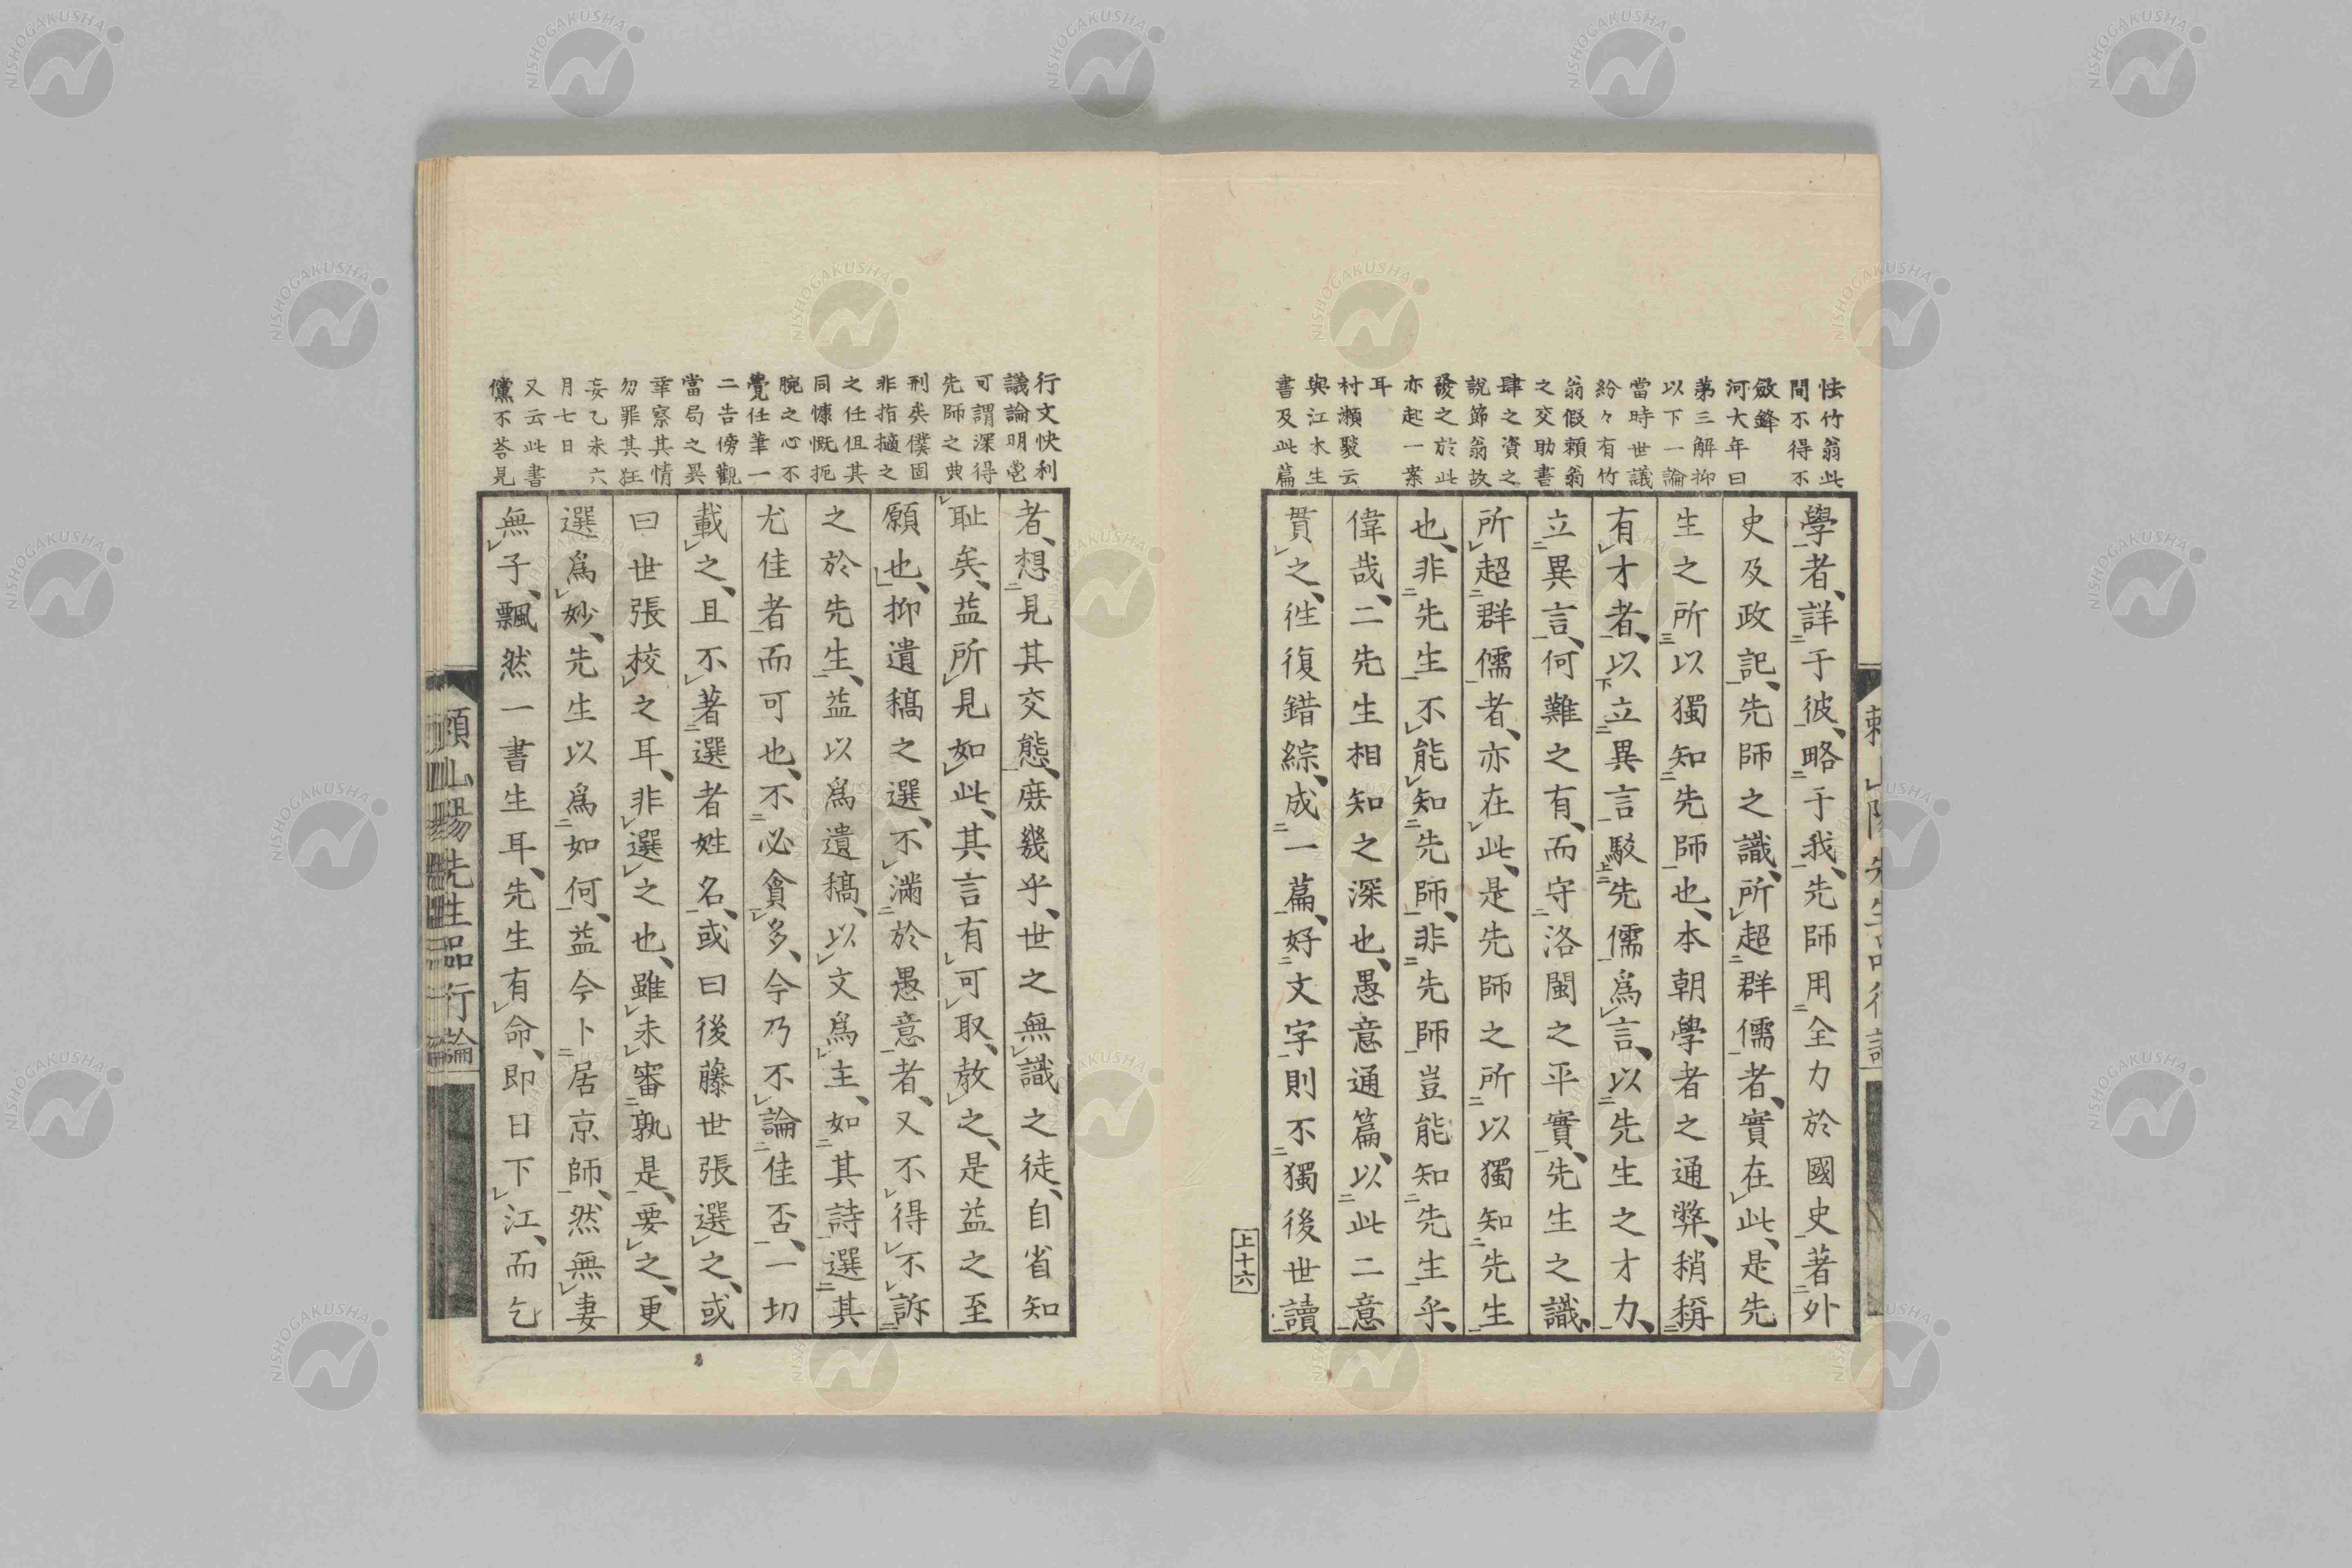 怯竹翁此
間不得不
斂鋒
河大年曰
第三解抑
以下一論
當時世議
紛々有竹
翁假頼翁
之交助書
肆之資之
說節翁故
發之於此
亦起一案
耳
村瀨駿云
與江木生
書及此篇
學者、詳于彼、略于我、先師用全力於國史著外
史及政記、先師之識、所超群儒者、實在此、是先
生之所以獨知先師也、本朝學者之通弊、稍稱
有才者、以立異言駁先儒爲言、以先生之才力、
立異言、何難之有、而守洛閩之平實、先生之識、
所超群儒者、亦在此、是先師之所以獨知先生
也、非先生不能知先師、非先師豈能知先生乎、
偉哉、二先生相知之深也、愚意通篇、以此二意
貫之、徃復錯綜、成一篇、好文字則不獨後世讀
上十六
行文快利
議論明㐮
可謂深得
先師之典
刑矣僕固
非指擿之
之任但其
同慷慨扼
腕之心不
覺任筆一
二告傍觀
當局之異
幸察其情
勿罪其狂
妄乙未六
月七日
又云此書
儻不荅見
者、想見其交態、庶幾乎、世之無識之徒、自省知
耻矣、益所見如此、其言有可取、赦之、是益之至
願也、抑遺稿之選、不滿於愚意者、又不得不訴
之於先生、益以爲遺稿、以文爲主、如其詩選其
尤佳者而可也、不必貪多、今乃不論佳否、一切
載之、且不著選者姓名、或曰後藤世張選之、或
曰世張校之耳、非選之也、雖未審孰是、要之、更
選爲妙、先生以爲如何、益今卜居京師、然無妻
無子、飄然一書生耳、先生有命、即日下江、而乞
頼山陽先生品行論